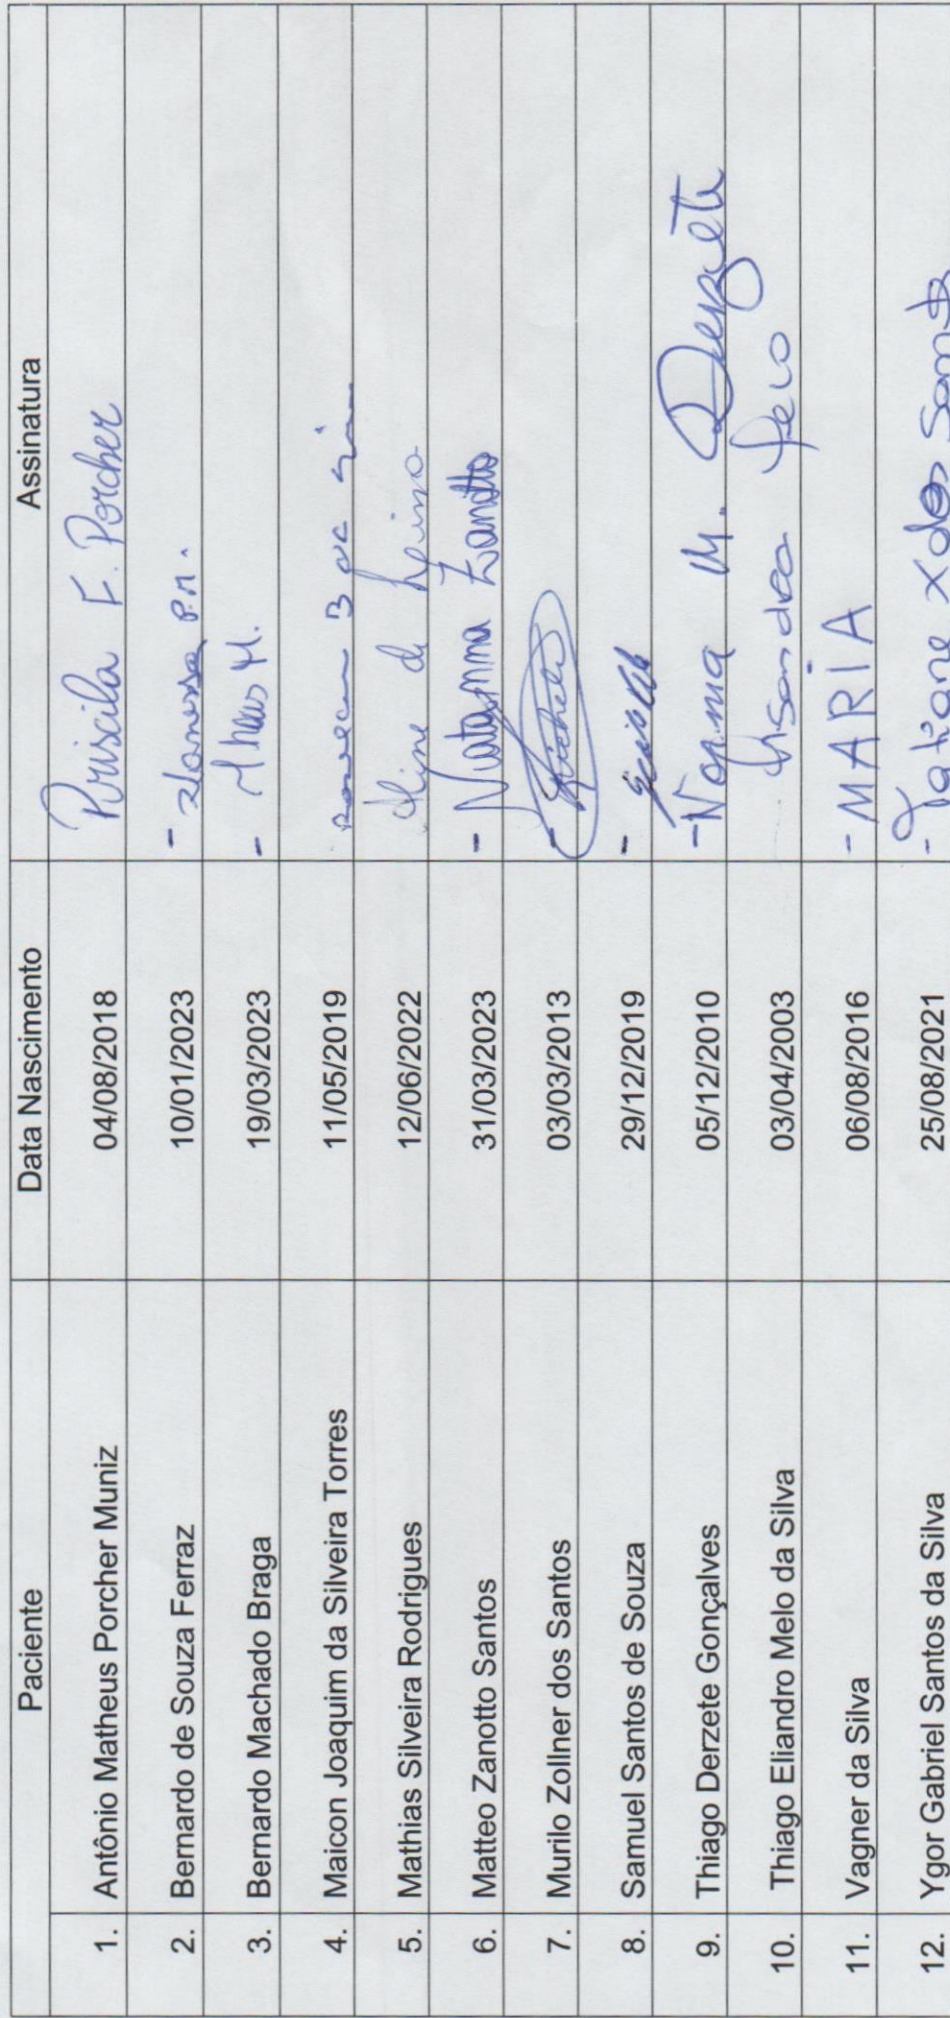 Paciente Data Nascimento Assinatura
1. Antônio Matheus Porcher Muniz 04/08/2018 Priscila F. Porcher
2. Bernardo de Souza Ferraz 10/01/2023 - P.M.
3. Bernardo Machado Braga 19/03/2023 - M.
4. Maicon Joaquim da Silveira Torres 11/05/2019
5. Mathias Silveira Rodrigues 12/06/2022 Aline
6. Matteo Zanotto Santos 31/03/2023 - Zanotto
7. Murilo Zollner dos Santos 03/03/2013 -
8. Samuel Santos de Souza 29/12/2019 -
9. Thiago Derzete Gonçalves 05/12/2010 - Norma M. Derzete
10. Thiago Eliandro Melo da Silva 03/04/2003
11. Vagner da Silva 06/08/2016 - MARIA
12. Ygor Gabriel Santos da Silva 25/08/2021 - Tatiane X dos Santos